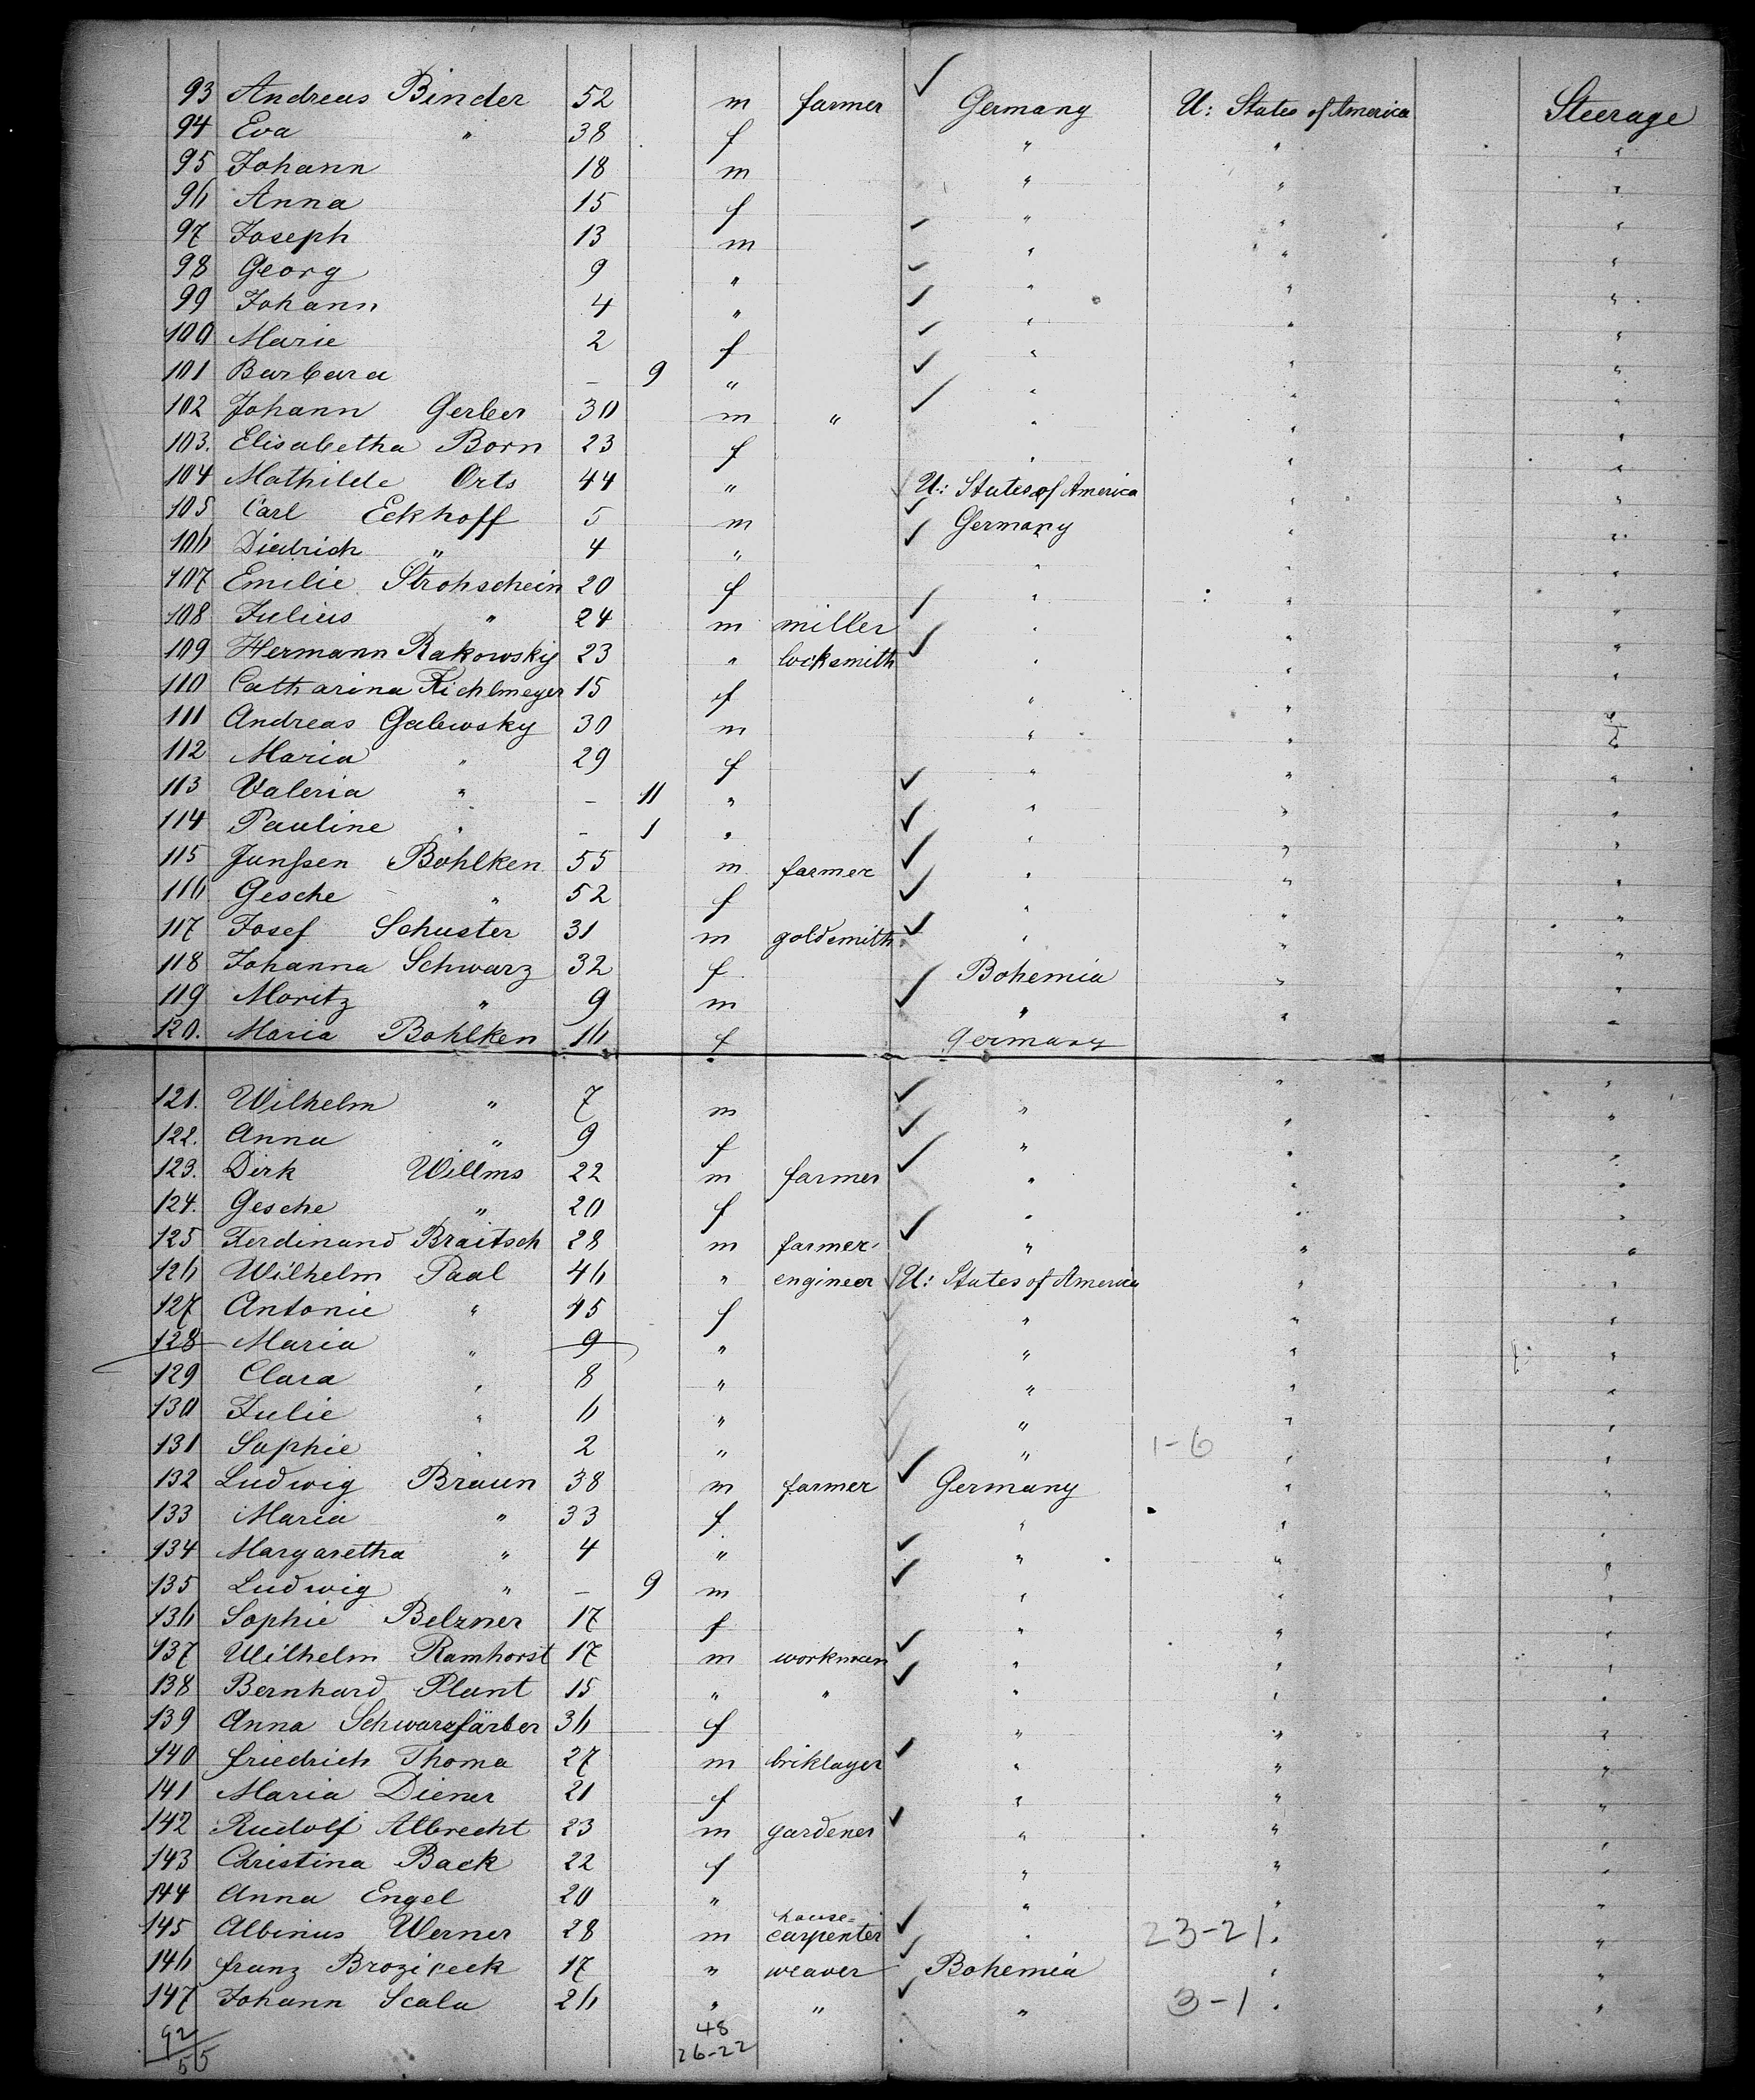 93 Andreas Binder 52 m farmer ✓ Germany U: States of America Steerage
94 Eva " 38 f " " "
95 Johann 18 m " " "
96 Anna 15 f " " "
97 Joseph 13 m ✓ " " "
98 Georg 9 " ✓ " " "
99 Johann 4 " ✓ " " "
100 Marie 2 f ✓ " " "
101 Barbara – 9 " ✓ " " "
102 Johann Gerber 30 m " ✓ " " "
103. Elisabetha Born 23 f " " "
104 Mathilde Orts 44 " ✓ U: States of America " "
105 Carl Eckhoff 5 m ✓ Germany " "
106 Diedrich " 4 " ✓ " " "
107 Emilie Strohschein 20 f " " "
108 Julius " 24 m miller ✓ " " "
109 Hermann Rakowsky 23 " locksmith ✓ " " "
110 Catharina Fichlmeyer 15 f " " "
111 Andreas Galewsky 30 m " " "
112 Maria " 29 f " " "
113 Valeria " – 11 " ✓ " " "
114 Pauline " – 1 " ✓ " " "
115 Junssen Bohlken 55 m farmer ✓ " " "
116 Gesche " 52 f ✓ " " "
117 Josef Schuster 31 m goldsmith ✓ " " "
118 Johanna Schwarz 32 f Bohemia " "
119 Moritz " 9 m ✓ " " "
120. Maria Bohlken 16 f Germany " "
121. Wilhelm " 7 m ✓ " " "
122. Anna " 9 f ✓ " " "
123. Dirk Willms 22 m farmer ✓ " " "
124. Gesche " 20 f " " "
125 Ferdinand Braitsch 28 m farmer ✓ " " "
126 Wilhelm Paal 46 " engineer ✓ U: States of America " "
127 Antonie " 45 f ✓ " " "
128 Maria " 9 " ✓ " " "
129 Clara " 8 " ✓ " " "
130 Julie " 6 " ✓ " " "
131 Sophie " 2 " ✓ " 1-6 " "
132 Ludwig Braun 38 m farmer ✓ Germany " "
133 Maria " 33 f " " "
134 Margaretha " 4 " ✓ " " "
135 Ludwig " – 9 m ✓ " " "
136 Sophie Belzner 17 f " " "
137 Wilhelm Ramhorst 17 m workman ✓ " " "
138 Bernhard Plant 15 " " ✓ " " "
139 Anna Schwarzfärber 36 f " " "
140 Friedrich Thoma 27 m briklayer ✓ " " "
141 Maria Diener 21 f " " "
142 Rudolf Albrecht 23 m gardener ✓ " " "
143 Christina Back 22 f " " "
144 Anna Engel 20 " " " "
145 Albinus Werner 28 m house=carpenter ✓ " 23-21 " "
146 Franz 17 " weaver ✓ Bohemia " "
147 Johann Scala 26 " " ✓ " 3-1 " "
92 48
55 26-22